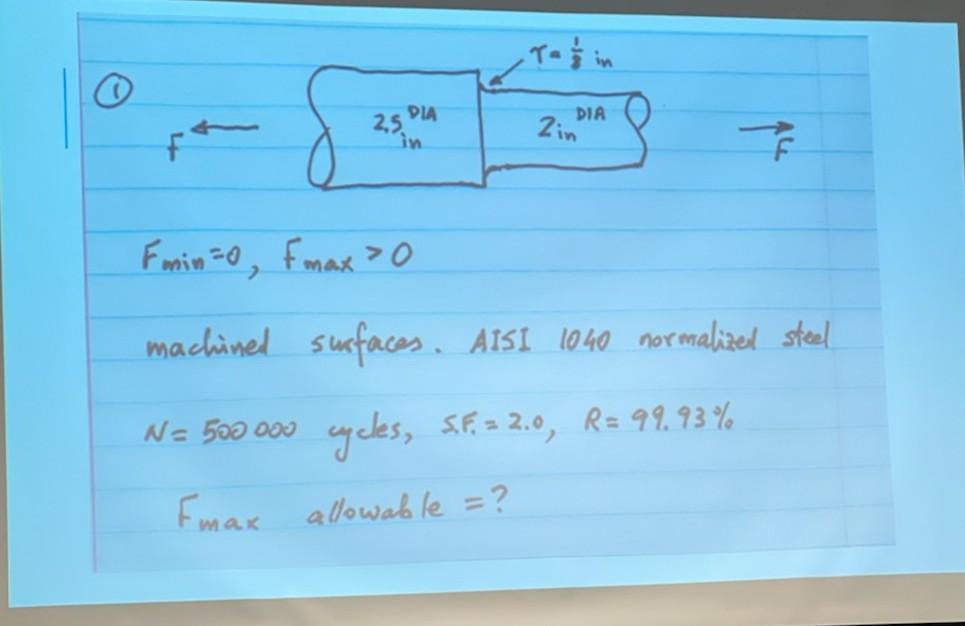 ①
r = 1/8 in
2.5 in DIA
2 in DIA
F
F
Fmin = 0, Fmax > 0
machined surfaces. AISI 1040 normalized steel
N = 500 000 cycles, S.F. = 2.0, R = 99.93%
Fmax allowable = ?